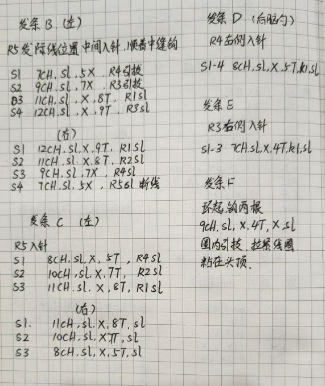 发条 B (左)
R5发际线位置中间入针,顺着中缝钩
S1 7CH,sl,5X,R4引拔
S2 9CH,sl,7X,R3引拔
S3 11CH,sl,X,8T,R1sl
S4 12CH,sl,X,9T,R3sl
(右)
S1 12CH,sl,X,9T,R1sl
S2 11CH,sl,X,8T,R2sl
S3 9CH,sl,7X,R4sl
S4 7CH,sl,5X,R5sl 断线
发条 C (左)
R5入针
S1 8CH,sl,X,5T,R4sl
S2 10CH,sl,X,7T,R2sl
S3 11CH,sl,X,8T,R1sl
(右)
S1. 11CH,sl,X,8T,sl
S2 10CH,sl,X,7T,sl
S3 8CH,sl,X,5T,sl
发条 D (后脑勺)
R4右侧入针
S1-4 8CH,sl,X,5T,k1,sl
发条 E
R3右侧入针
S1-3 7CH,sl,X,4T,k1,sl
发条 F
环起,钩两根
9CH,sl,X,4T,X,sl
圈内引拔,拉紧线圈
粘在头顶.